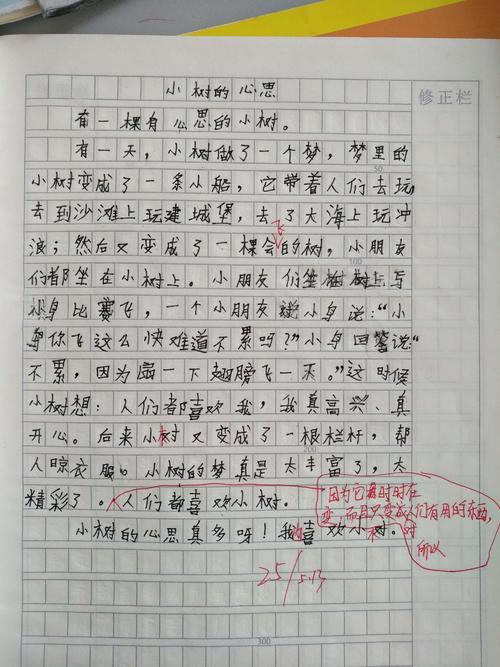 修正栏
小树的心思
有一棵有心思的小树。
有一天，小树做了一个梦，梦里的
50
小树变成了一条小船，它带着人们去玩，
去到沙滩上玩建城堡，去了大海上玩冲
飞
浪；然后又变成了一棵会的树，小朋友
100
们都坐在小树上。小朋友们坐树上与
小鸟比赛飞，一个小朋友说小鸟说：“小
鸟你飞这么快难道不累吗？”小鸟回答说：“
不累，因为扇一下翅膀飞一天。”这时候
小树想：人们都喜欢我，我真高兴、真
开心。后来小树又变成了一根栏杆，帮
200
人晾衣服。小树的梦真是太丰富了，太
精彩了。人们都喜欢小树。
因为它时时在
变，而且只变成人们有用的东西，
所以
小树的心思真多呀！我喜欢小树。
25/5.13
300